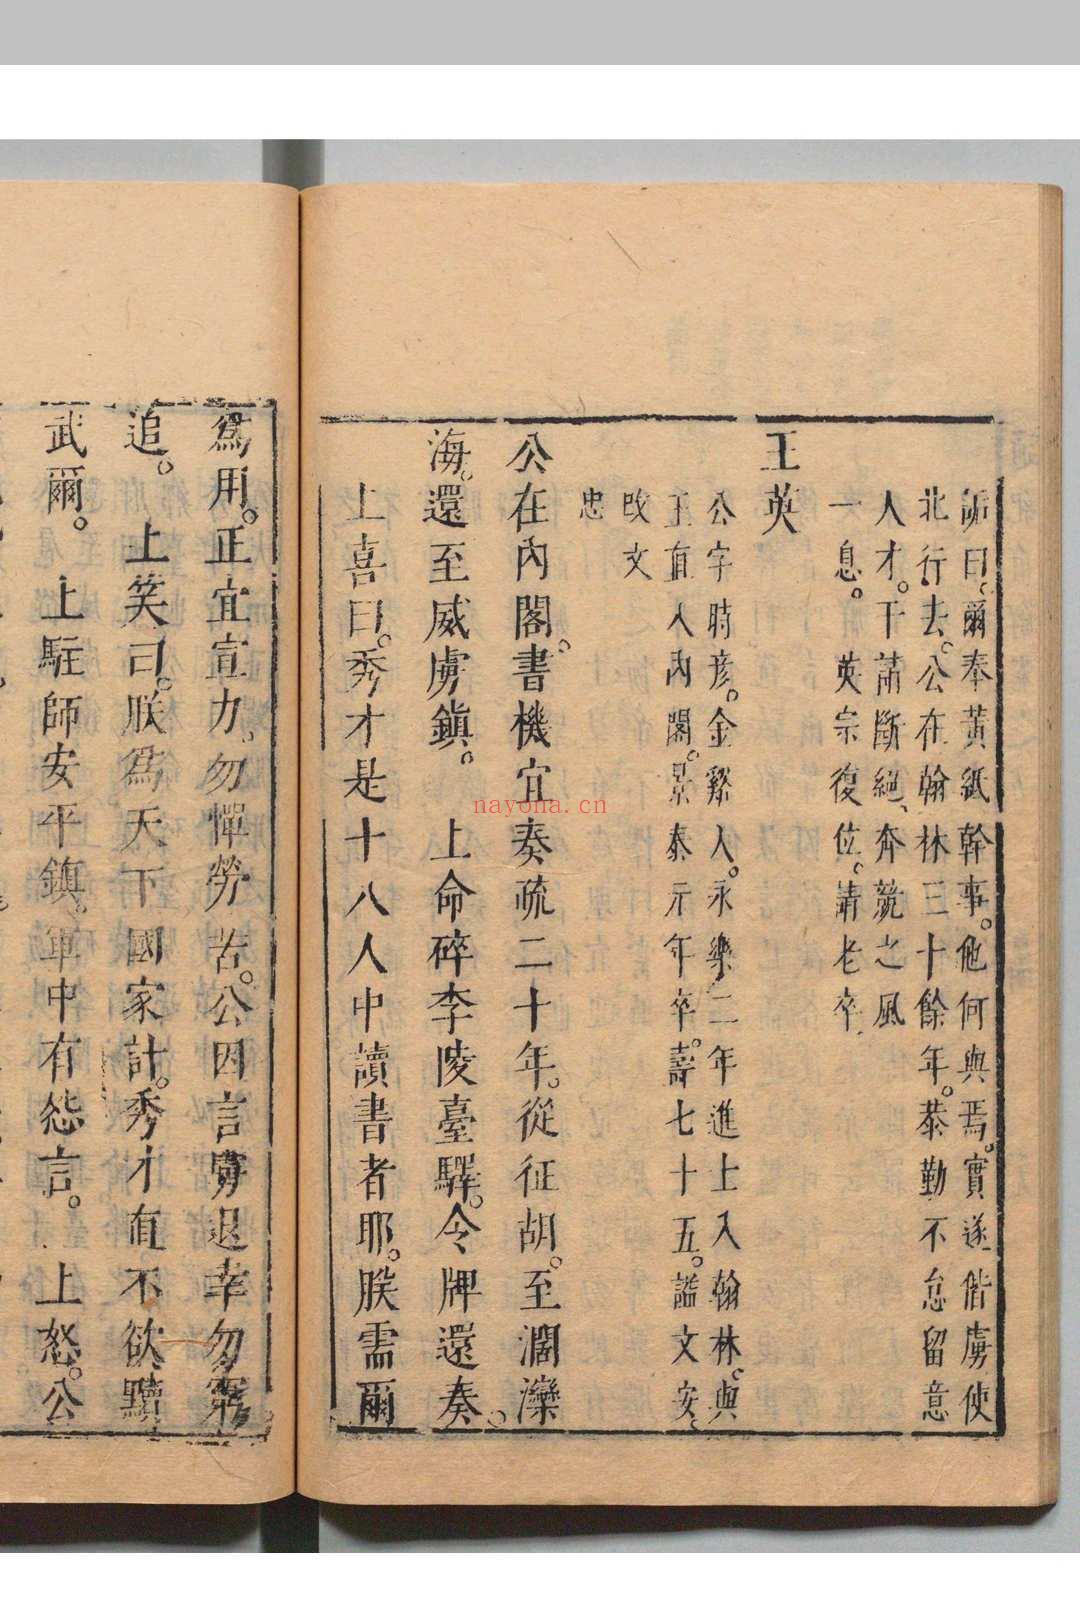 訴曰、爾奉黃紙幹事。他何與焉。實遂偕虜使
北行去。公在翰林三十餘年。恭勤不怠留意
人才。干謁斷絕、奔競之風
一息。英宗復位。請老卒
王英
公字時彥。金谿人。永樂二年進士入翰林。與
王直入內閣。景泰元年卒。壽七十五。謚文安、
改文
忠
公在內閣。書機宜奏疏二十年。從征胡。至濶灤
海。還至威虜鎮。上命碎李陵臺驛。令牌還奏。
上喜曰。秀才是十八人中讀書者耶。朕需爾
爲用。正宜宣力。勿憚勞苦。公因言虜退幸勿窮
追。上笑曰。朕爲天下國家計。秀才直不欲黷
武爾。上駐師安平鎮。軍中有怨言。上怒。公
nayona.cn